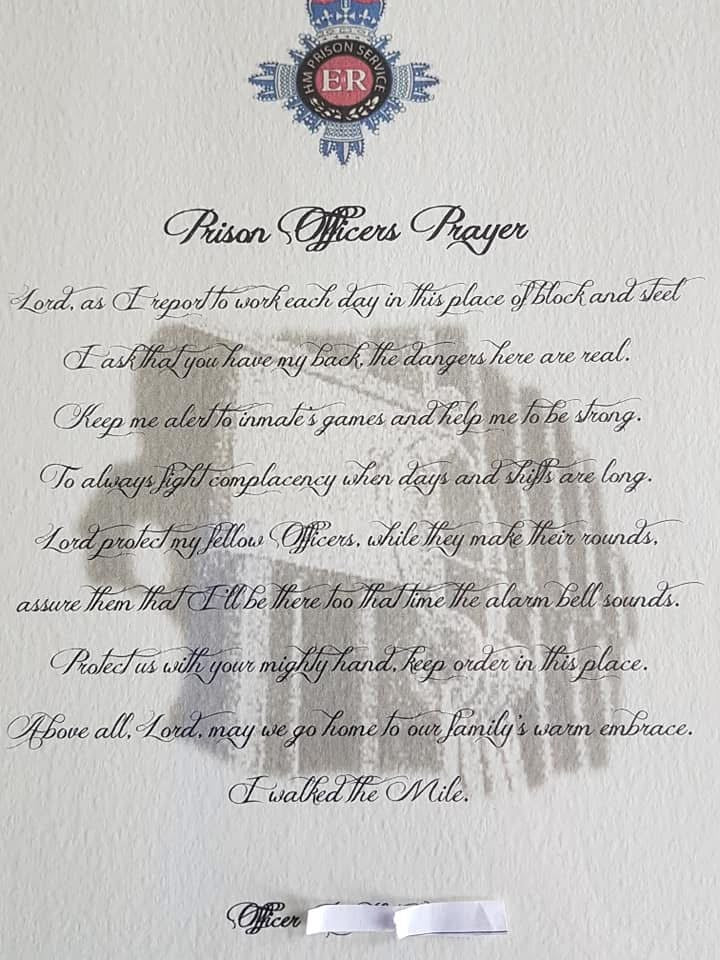 HM PRISON SERVICE
E R
Prison Officers Prayer
Lord, as I report to work each day in this place of block and steel
I ask that you have my back, the dangers here are real.
Keep me alert to inmate's games and help me to be strong.
To always fight complacency when days and shifts are long.
Lord protect my fellow Officers, while they make their rounds,
assure them that I'll be there too that time the alarm bell sounds.
Protect us with your mighty hand, keep order in this place.
Above all, Lord, may we go home to our family's warm embrace.
I walked the Mile.
Officer